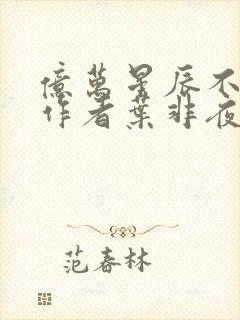 億萬星辰不
作者葉非夜
范春林